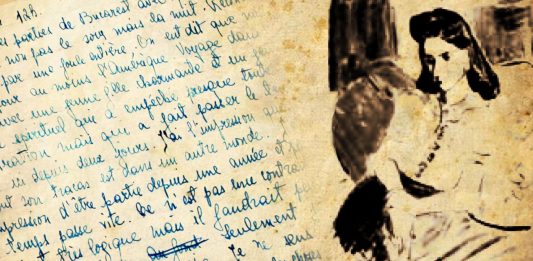 128.
parties de Bucarest avec
non pas le soir mais la nuit.
par une foule entière. On eut dit que
pour au moins l'Amérique. Voyage dans
avec une jeune fille charmante et un
spirituel qui a empêché presque toute
ration mais qui a fait passer le
ici depuis deux jours. J'ai l'impression
tout son tracas est dans un autre monde.
impression d'être partie depuis une année et
temps passe vite. Ce n'est pas une contra
très logique mais il faudrait
au fond seulement
Je ne sens
choses